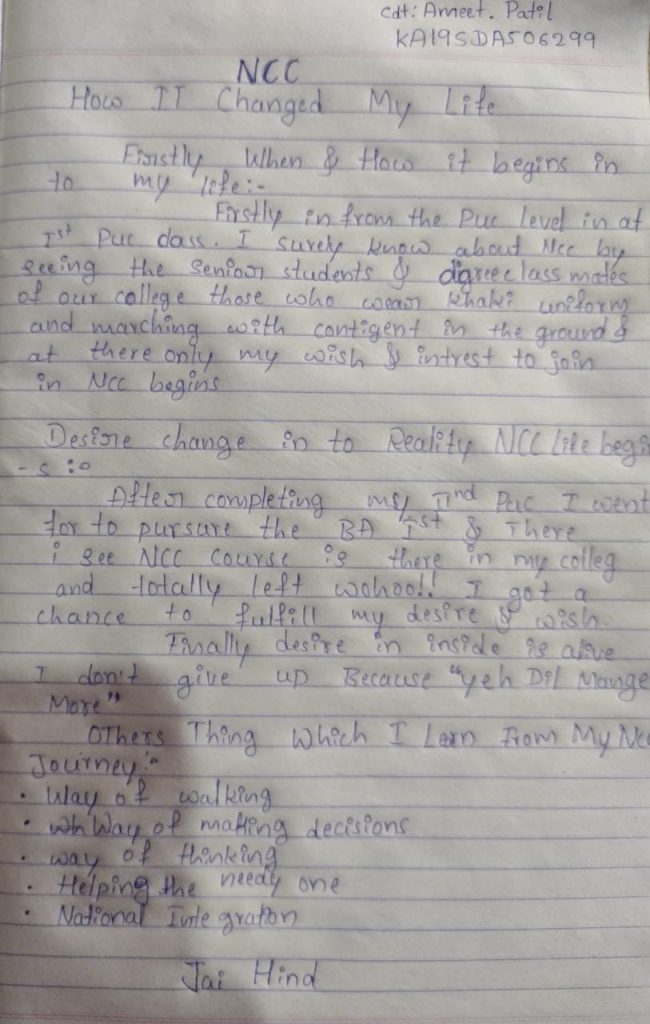 cdt: Ameet. Patil
KA19SDA506299
NCC
How IT Changed My Life
Firstly When & How it begins in
to my life:-
Firstly in from the Puc level in at
Ist Puc class. I surely know about Ncc by
seeing the senior students & digree classmates
of our college those who wear khaki uniform
and marching with contigent in the ground &
at there only my wish & intrest to join
in Ncc begins
Desire change in to Reality NCC Life begin
-s :-
After completing my IInd Puc I went
for to pursure the BA Ist & There
i see NCC course is there in my colleg
and totally left wohoo!! I got a
chance to fulfill my desire & wish.
Finally desire in inside is alive
I don't give up Because "yeh Dil Mange
More"
OTHers Thing Which I Learn From My Ncc
Journey:-
• Way of walking
• Way of making decisions
• way of thinking
• Helping the needy one
• National Integration
Jai Hind